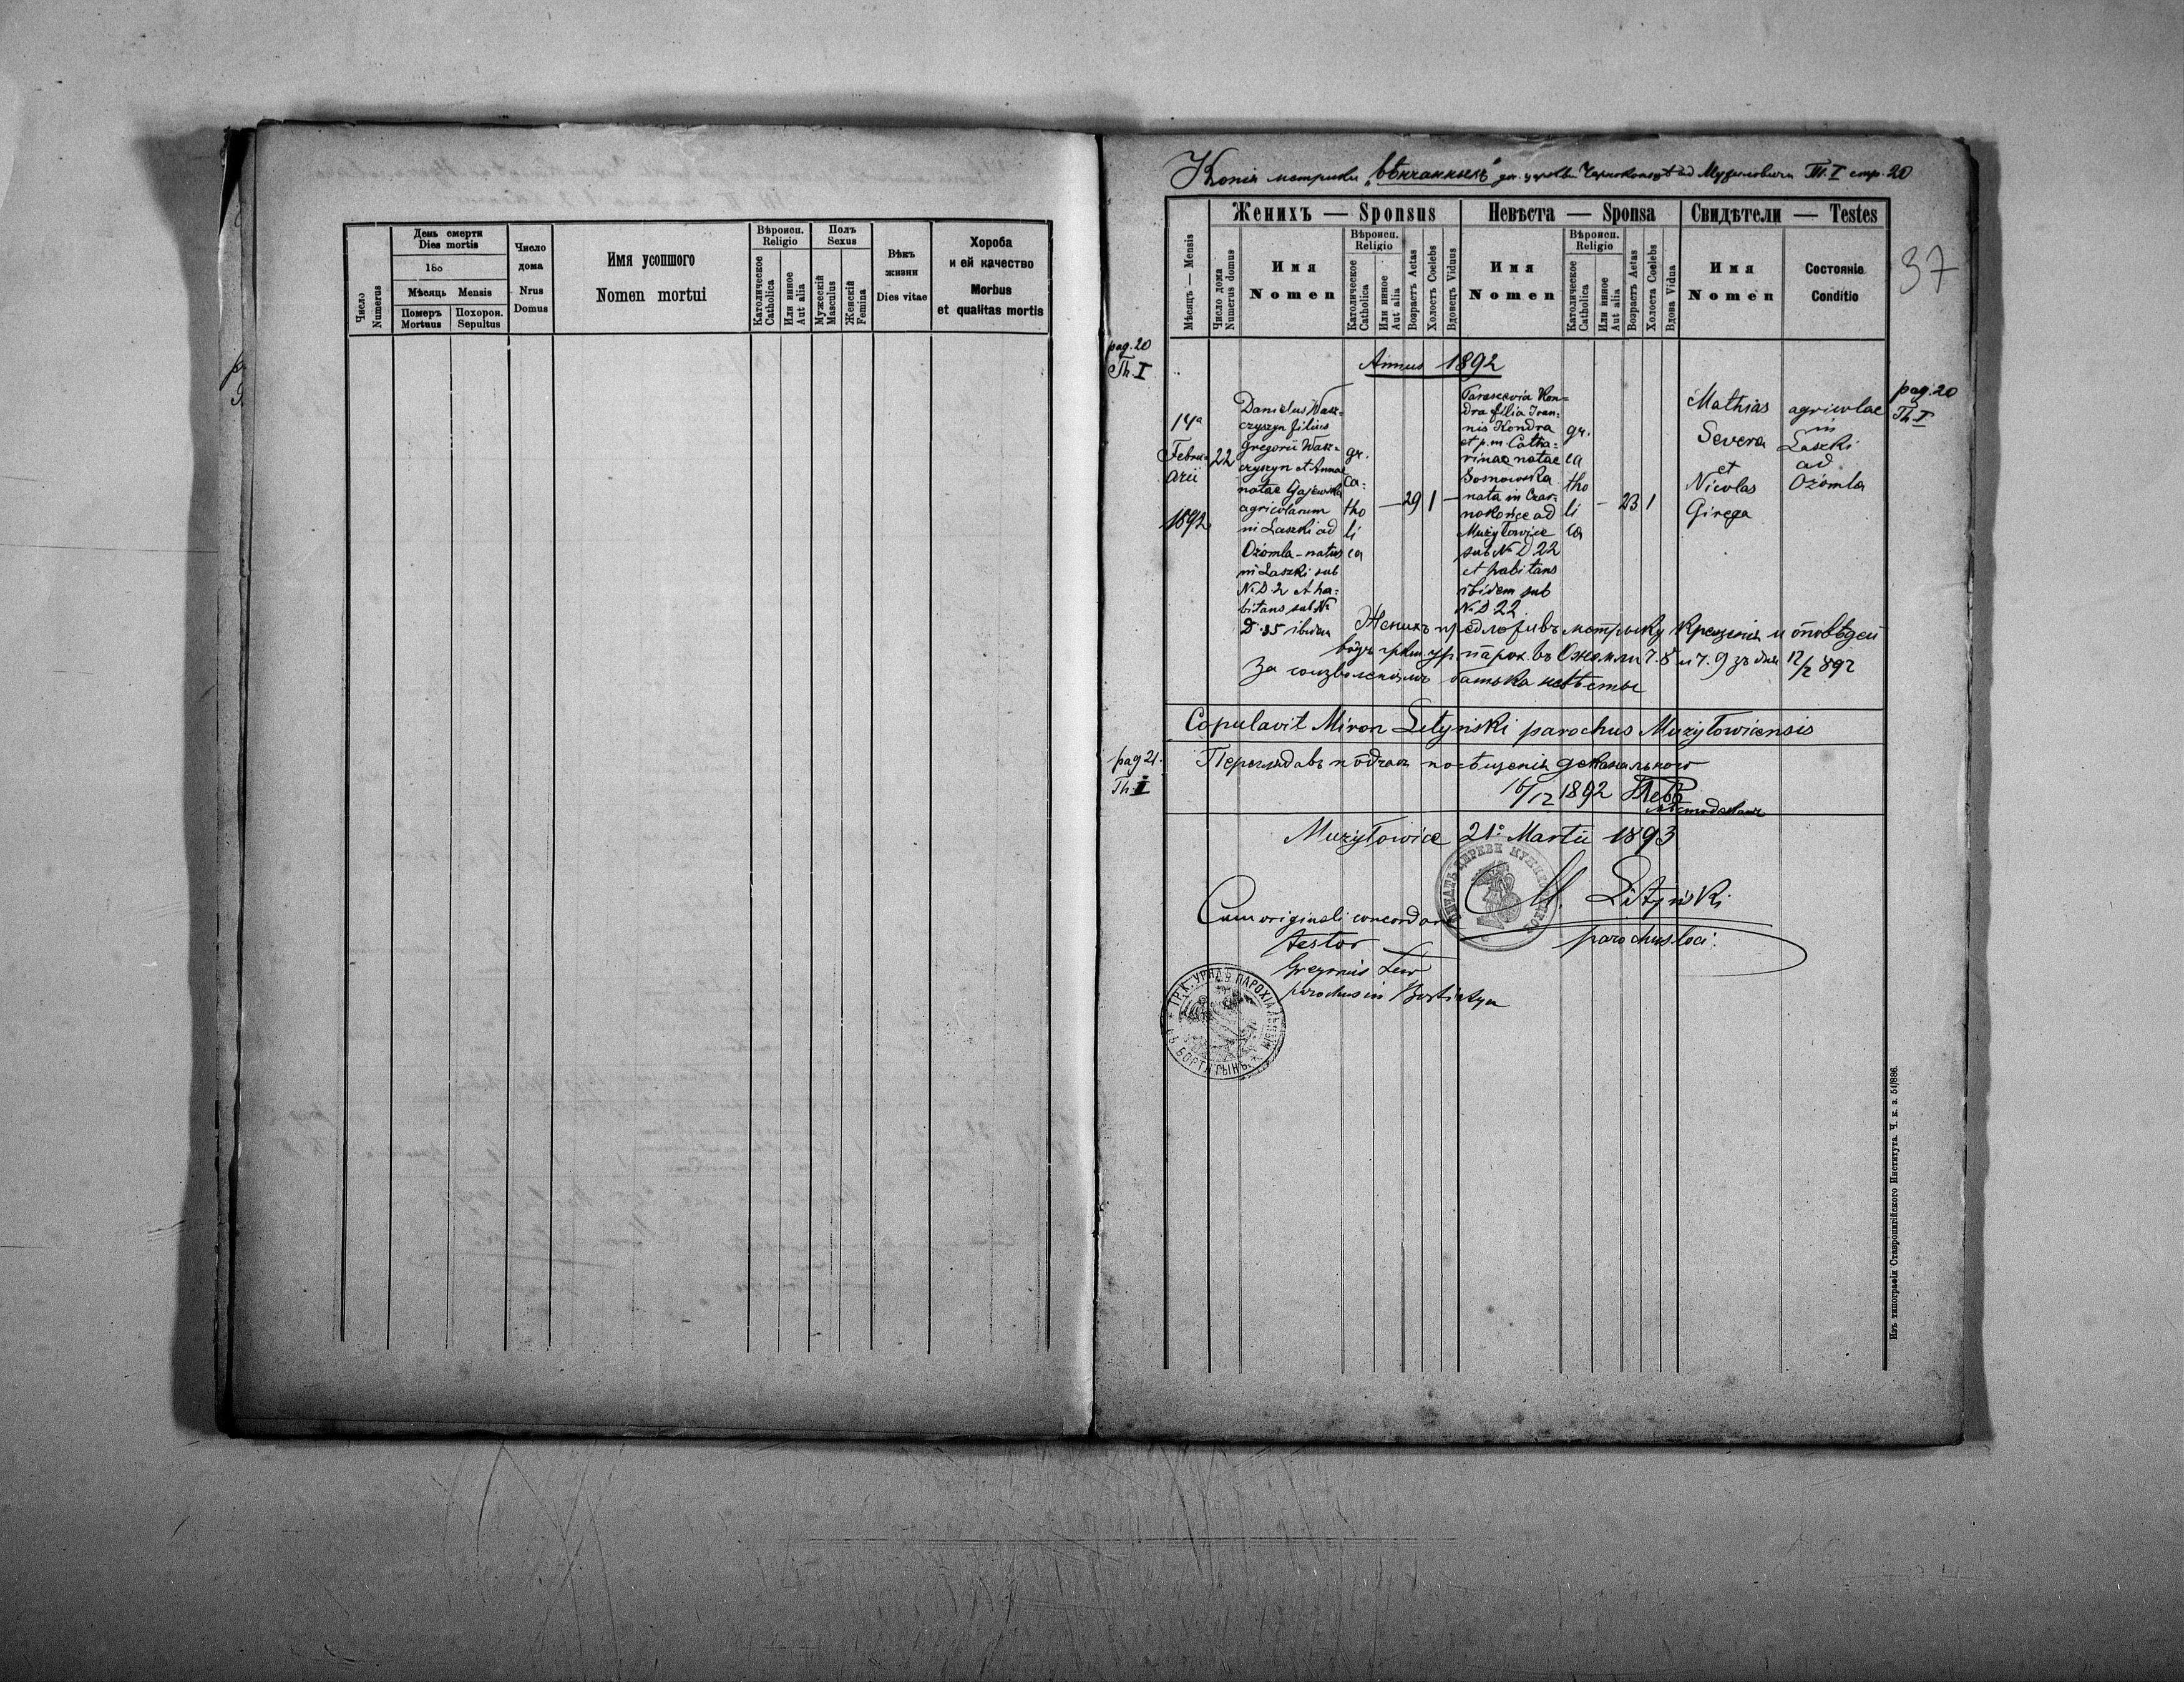 День смерти
Dies mortis
Число
Numerus
180
Мѣсяць Mensis
Померъ
Mortuus
Похорон.
Sepultus
Число
дома
Nrus
Domus
Имя усопшого
Nomen mortui
Вѣроисп.
Religio
Католическое
Catholica
Или инное
Aut alia
Полъ
Sexus
Мужескій
Masculus
Женскій
Femina
Вѣкъ
жизни
Dies vitae
Хороба
и ей качество
Morbus
et qualitas mortis
Копія метрики „вѣнчанныхъ" Т.I стр. 20
37
Женихъ — Sponsus
Невѣста — Sponsa
Свидѣтели — Testes
Мѣсяць — Mensis
Число дома
Numerus domus
Имя
Nomen
Вѣроисп.
Religio
Католическое
Catholica
Или инное
Aut alia
Возрастъ Aetas
Холостъ Coelebs
Вдовецъ Viduus
Имя
Nomen
Вѣроисп.
Religio
Католическое
Catholica
Или инное
Aut alia
Возрастъ Aetas
Холоста Coelebs
Вдова Vidua
Имя
Nomen
Состояніе
Conditio
pag. 20
Th I
Annus 1892
14a
Febru-
arii
1892
22
Danielus Wasz-
czyszyn filius
Gregorii Wasz-
czyszyn et Annae
natae Gajewska
agricolarum
in Laszki ad
Ożomla - natus
in Laszki sub
N. D 2 et ha-
bitans sub No
D. 85 ibidem
gr.
ca-
tho
li
ca
— 29 1 —
Parascevia Kon-
dra filia Ioan-
nis Kondra
et p.m Catha-
rinae natae
Sosnowska
nata in Czar-
nokońce ad
Mużyłowice
sub No D 22
et habitans
ibidem sub
No D 22
gr.
ca
tho
li
ca
— 23 1
Mathias
Severa
et
Nicolas
Girega
agricolae
in
Laszki
ad
Ożomla
pag. 20
Th. I
Женихъ предложивъ метрику крещенія и оповѣдей
парох. въ Ожомли Ч. 8 и Ч. 9 зъ дня 12/2 892
За соизволеніемъ батька невѣсты
Copulavit Miron Letyński parochus Mużyłowicensis
pag 21.
Th. I
Переглядавъ подчасъ посѣщенія деканального
16/12 1892
Mużyłowice 21o Martii 1893
M. Letyński
parochus loci
Cum originali concordare
testor
Gregorius Lew
parochus in Bortiatyn
ГР.К. УРЯДЪ ПАРОХІАЛЬНЫЙ
ВЪ БОРТЯТЫНѢ
Изъ типографіи Ставропигійского Института. Ч. к. з. 51/886.